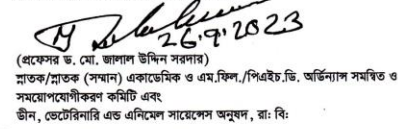 26.9.2023
(প্রফেসর ড. মো. জালাল উদ্দিন সরদার)
স্নাতক/স্নাতক (সম্মান) একাডেমিক ও এম.ফিল./পিএইচ.ডি. অর্ডিন্যান্স সমন্বিত ও
সময়োপযোগীকরণ কমিটি এবং
ডীন, ভেটেরিনারি এন্ড এনিমেল সায়েন্সেস অনুষদ, রাঃ বিঃ